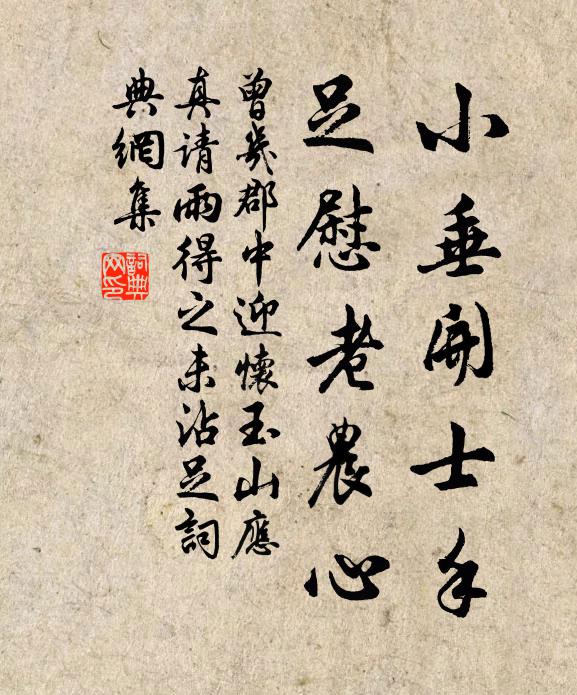 小垂開士手
足慰老農心
曾幾郡中迎懷玉山應
真請雨得之未沾足詞
典網集
詞典網印